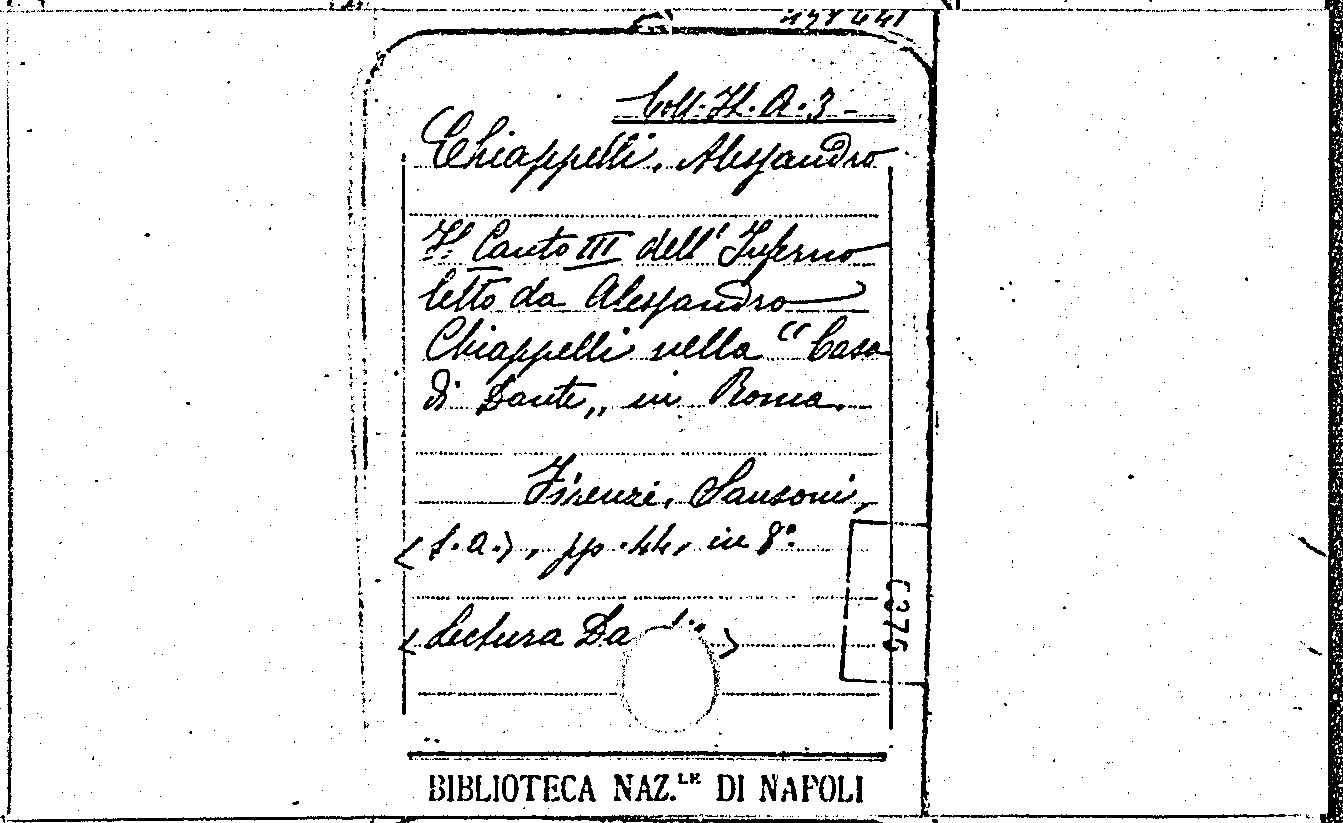 Coll. It. A. 3
Chiappelli, Alessandro
Il Canto III dell'Inferno
letto da Alessandro
Chiappelli nella "Casa
di Dante„ in Roma.
Firenze, Sansoni,
(s.a.), pp. 44, in 8º.
(Lectura Da
C376
BIBLIOTECA NAZ.LE DI NAPOLI